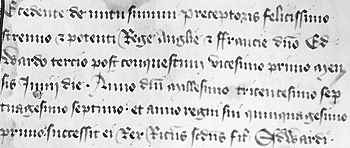 Recedente de mundi summi preceptoris felicissimo
strenuo & potenti Rege Anglie & ffrancie dn̄o Ed
wardo tercio post conquestum vicesimo primo men
sis Junij die . Anno dn̄i millesimo tricentesimo sep
tuagesimo septimo . et anno regni sui quinquagesimo
primo . successit ei Rex Ricūs scdus fil' Edwardi .